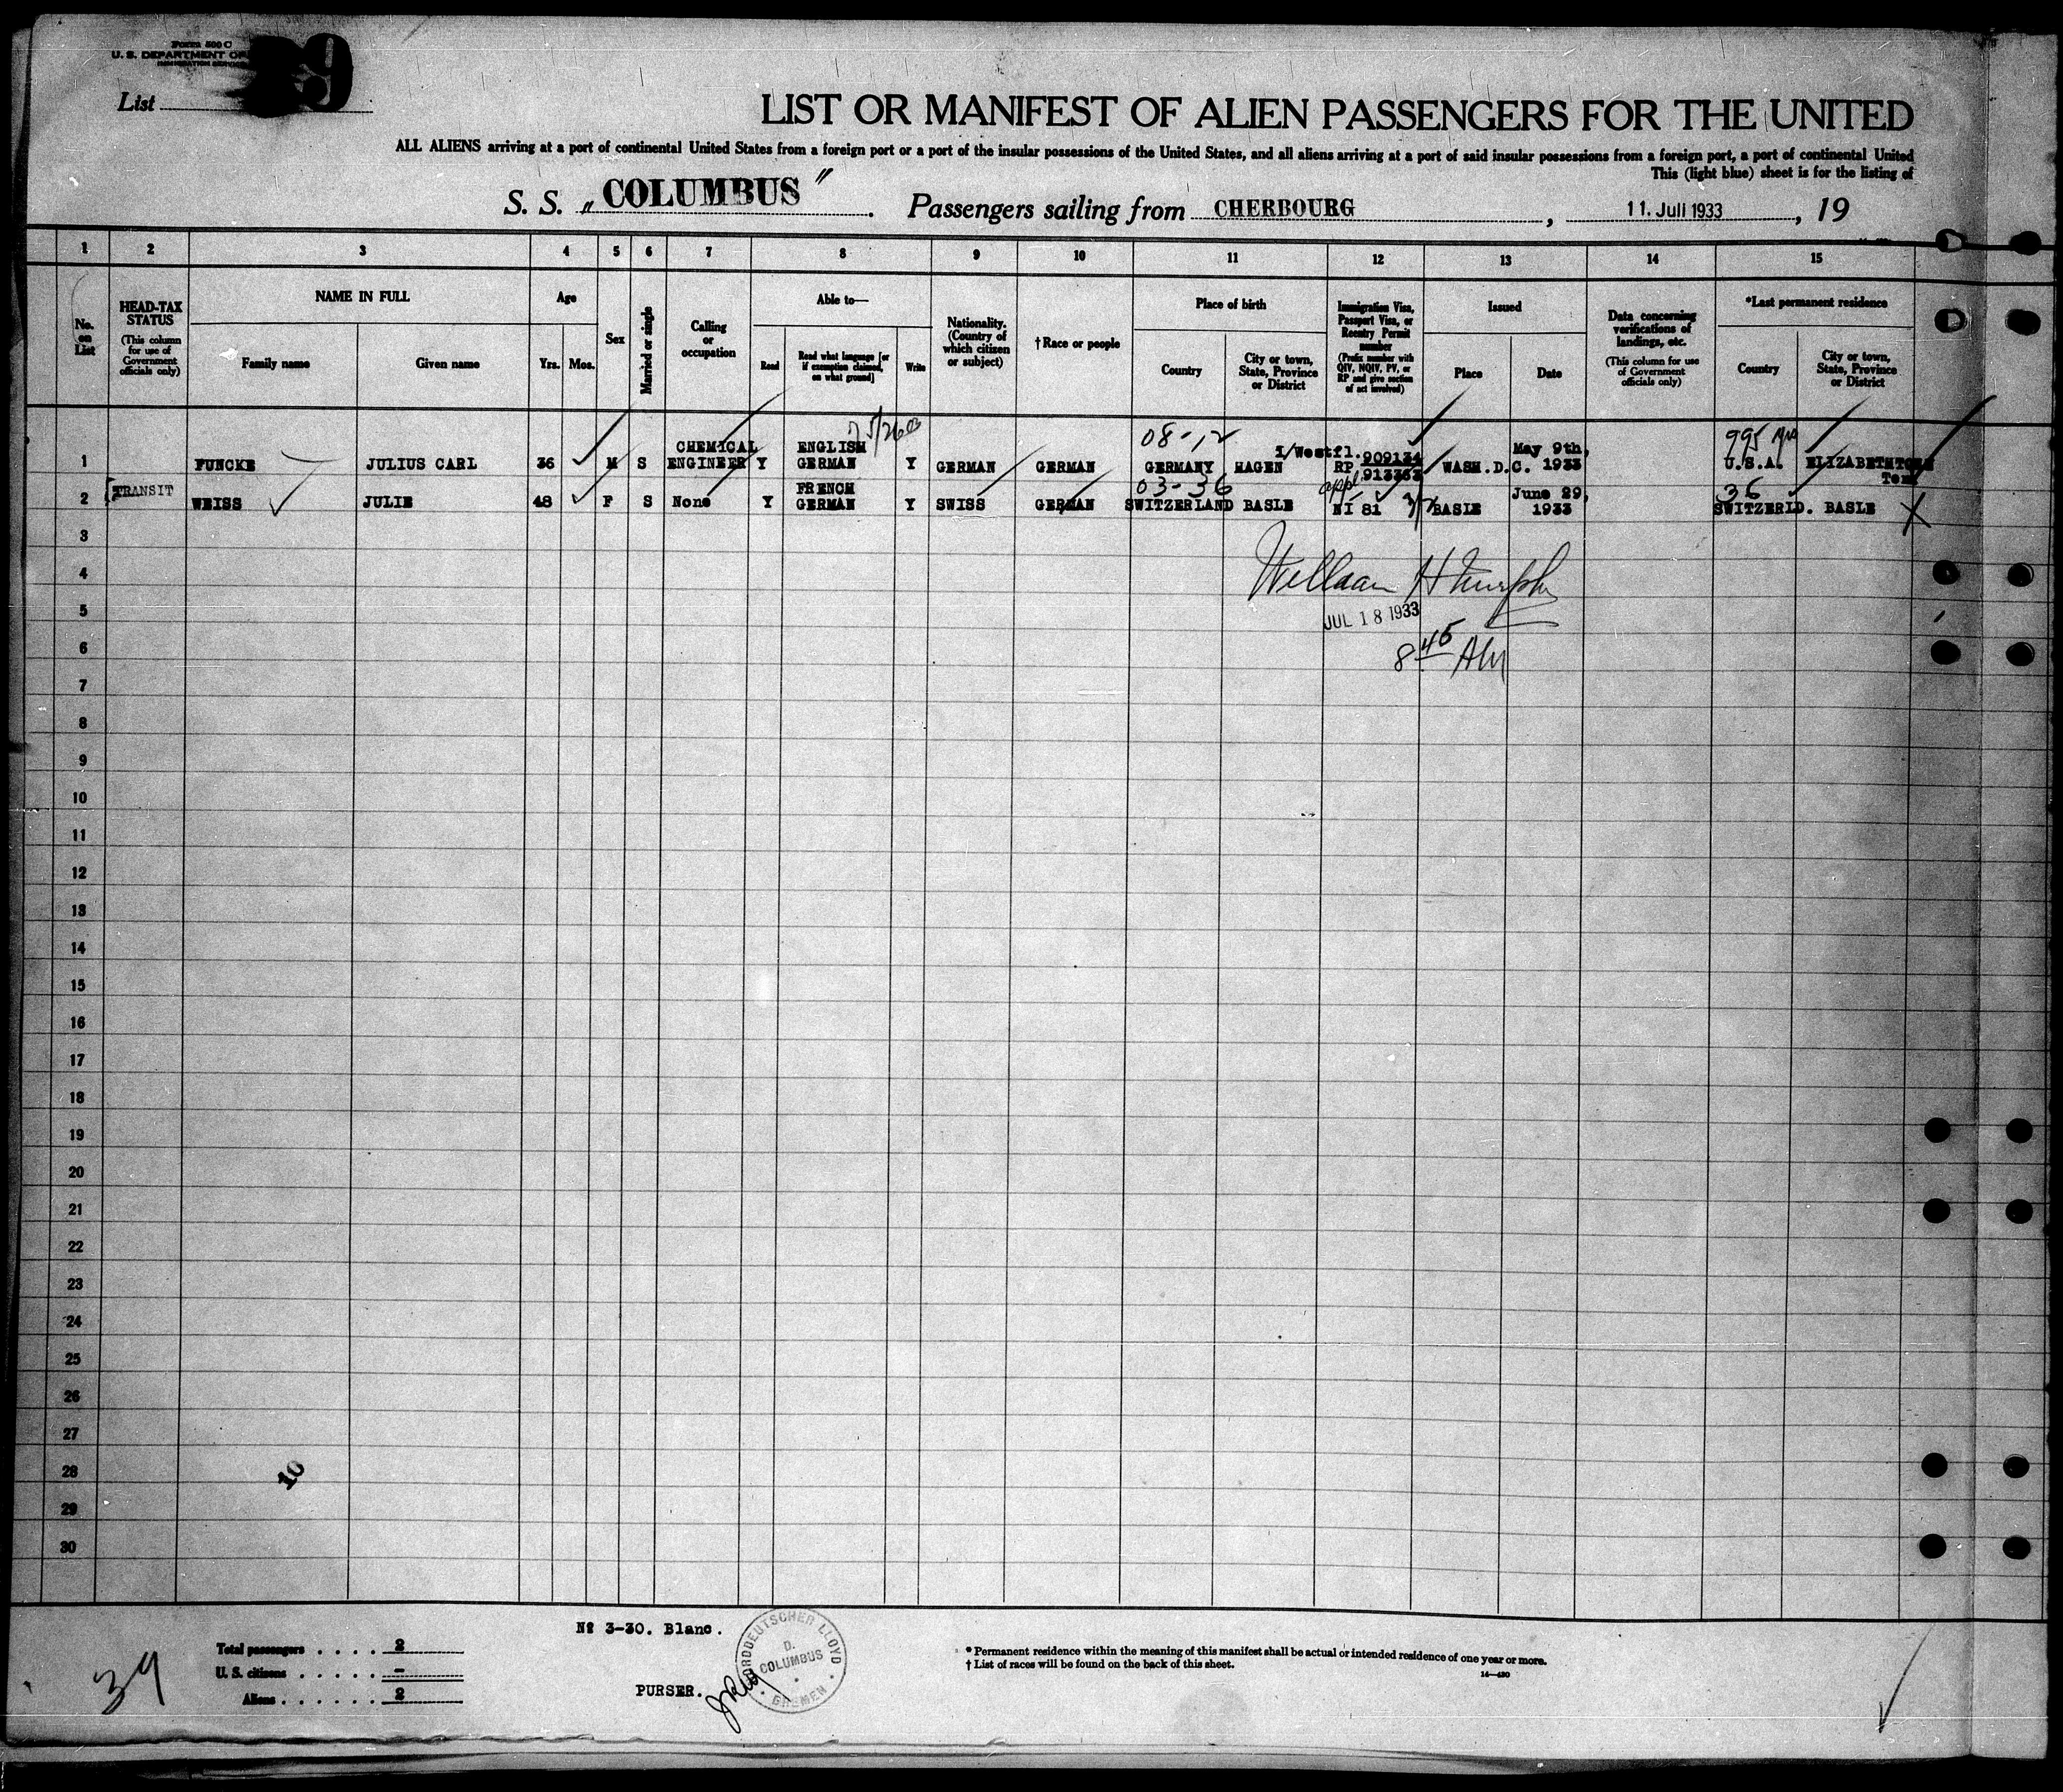 Form 500 C
U. S. DEPARTMENT OF
IMMIGRATION SERVICE
List 39
LIST OR MANIFEST OF ALIEN PASSENGERS FOR THE UNITED
ALL ALIENS arriving at a port of continental United States from a foreign port or a port of the insular possessions of the United States, and all aliens arriving at a port of said insular possessions from a foreign port, a port of continental United
This (light blue) sheet is for the listing of
S. S. „COLUMBUS". Passengers sailing from CHERBOURG, 11. Juli 1933, 19
1 2 3 4 5 6 7 8 9 10 11 12 13 14 15
No. on List
HEAD-TAX STATUS
(This column for use of Government officials only)
NAME IN FULL
Family name
Given name
Age
Yrs. Mos.
Sex
Married or single
Calling or occupation
Able to—
Read
Read what language [or if exemption claimed, on what ground]
Write
Nationality. (Country of which citizen or subject)
†Race or people
Place of birth
Country
City or town, State, Province or District
Immigration Visa, Passport Visa, or Reentry Permit number
(Prefix number with QIV, NQIV, PV, or RP and give section of act involved)
Issued
Place
Date
Data concerning verifications of landings, etc.
(This column for use of Government officials only)
*Last permanent residence
Country
City or town, State, Province or District
08-12
CHEMICAL ENGLISH I/Westfl. 909134 May 9th,
1 FUNCKE JULIUS CARL 36 M S ENGINEER Y GERMAN Y GERMAN GERMAN GERMANY HAGEN RP 913363 WASH.D.C. 1933 U.S.A. ELIZABETHTON
Tenn
TRANSIT FRENCH 03-36 appl. June 29, 36
2 WEISS JULIE 48 F S None Y GERMAN Y SWISS GERMAN SWITZERLAND BASLE NI 81 BASLE 1933 SWITZERLD. BASLE X
3
William H Murphy
4
5
JUL 18 1933
6
8 45 AM
7
8
9
10
11
12
13
14
15
16
17
18
19
20
21
22
23
24
25
26
27
28
10
29
30
Nº 3-30. Blanc.
Total passengers . . . . 2
U. S. citizens . . . . . –
Aliens . . . . . . 2
39
PURSER.
NORDDEUTSCHER LLOYD
D. COLUMBUS
BREMEN
* Permanent residence within the meaning of this manifest shall be actual or intended residence of one year or more.
† List of races will be found on the back of this sheet.
14—430